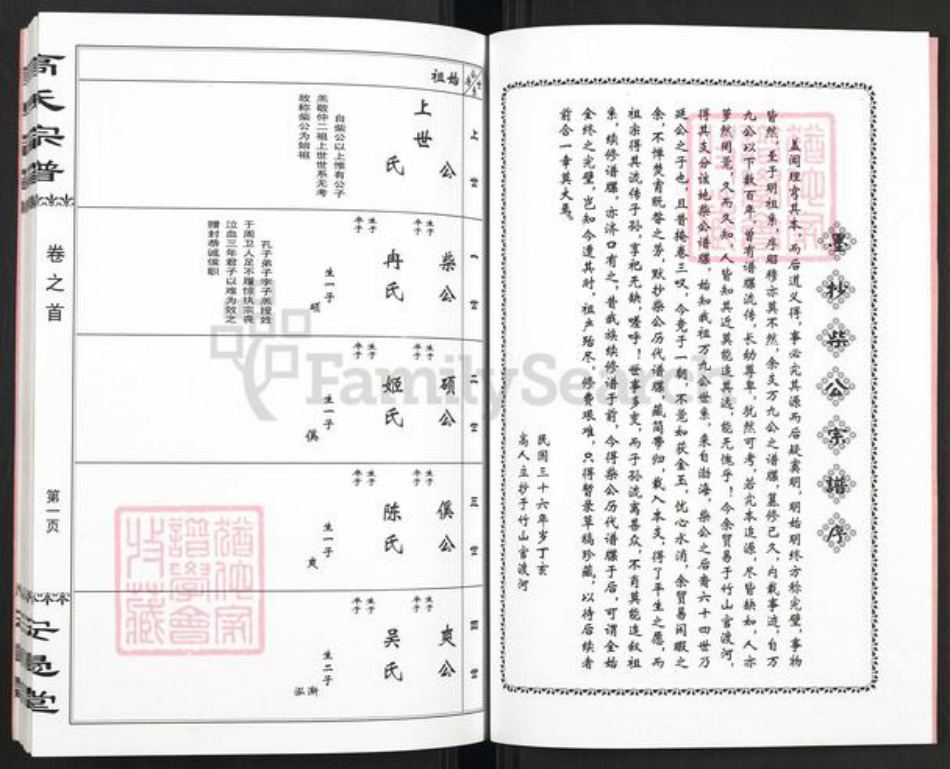 墨抄柴公宗谱序
盖闻理肯其本，而后道义得，事必究其源而后疑窦明，明始明终方称完璧，事物
皆然，至于明祖系，序昭穆亦莫不然，余支万九公之谱牒，纂修已久，内载事迹，自万
九公以下数百年，曾有谱牒流传，长幼尊卑，犹然可考，若究本追源，尽皆缺如，人亦
萝然闻意，久而久知，人皆知其近莫能追其远，能无愧乎！今余贸易于竹山官渡河，
得其支分该地柴公谱牒，始知我祖万九公世系，来自渤海，柴公之后裔六十四世乃
延公之子也，且昔掩卷三叹，今竟于一朝，不觉如获金玉，忧心水消，余贸易闲暇之
余，不惮焚膏晚昝之劳，默抄柴公历代谱牒，藏简带归，载入本支，得了平生之愿，而
祖宗得其流传子孙，享祀无缺，嗟呼！世事多变，而子孙流寓甚众，不肖莫能追叙祖
系，续修谱牒，亦济口有之，昔我族续修谱于前，今得柴公历代谱牒于后，可谓全始
全终之完璧，岂知今遭其时，祖产殆尽，修费艰难，只得暂录草稿珍藏，以待后续者
前合一幸莫大焉，
民国三十六年岁丁亥
高人立抄于竹山官渡河
高氏宗谱
卷之首
第一页
始祖
上世
上世 公
氏
自柴公以上惟有公子
羔敬仲二祖上世世系无考
故称柴公为始祖
一世
柴公
生于
卒于
冉氏
生于
卒于
生一子
硕
孔子弟子李子羔授姓
于周卫人足不履惊执宗丧
泣血三年君子以难为效之
赠封恭诚侯职
二世
硕公
生于
卒于
姬氏
生于
卒于
生一子
傒
三世
傒公
生于
卒于
陈氏
生于
卒于
生一子
爽
四世
爽公
生于
卒于
吴氏
生于
卒于
生二子
渐
泓
FamilySearch